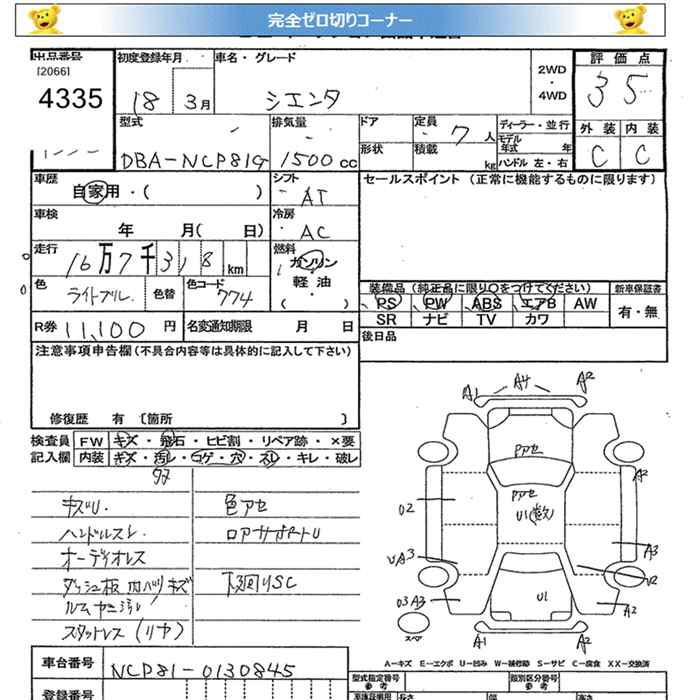 完全ゼロ切りコーナー
出品番号
[2066]
4335
初度登録年月
18 3月
車名・グレード
シエンタ
2WD
・
4WD
評価点
3 5
型式
DBA-NCP81G
排気量
1500cc
ドア
形状
定員
7人
積載
kg
ディーラー・並行
モデル
年式 年
ハンドル 左・右
外装 内装
C C
車歴
自家用・( )
シフト
AT
セールスポイント (正常に機能するものに限ります)
車検
年 月( 日)
冷房
AC
走行
16万7千318km
燃料
ガソリン
軽油
( )
色
ライトブル.
色替
色コード
774
装備品 (純正品に限り○をつけてください)
新車保証書
PS PW ABS エアB AW
有・無
SR ナビ TV カワ
R券 11,100円
名変通知期限 月 日
後日品
注意事項申告欄 (不具合内容等は具体的に記入して下さい)
修復歴 有 〔箇所 〕
検査員
記入欄
FW キズ・飛石・ヒビ割・リペア跡・×要
内装 キズ・汚レ・コゲ・穴・スレ・キレ・破レ
キズU.
色アセ
ハンドルスレ
ロアサポートU
オーディオレス
ダッシュ板 内ハリキズ
下廻りSC
ルムヤニ汚レ
スタットレス(リヤ)
A1 A4 A2
Pアセ
Pアセ
U1(数)
A2
U2
A3
UA3
U2
U3 A3
U1
A2
スペア
A1 A2
A-キズ E-エクボ U-凹み W-補修跡 S-サビ C-腐食 XX-交換済
車台番号
NCP81-0130845
型式指定番号
参考
類別区分番号
参考
登録番号
長さ
幅
高さ